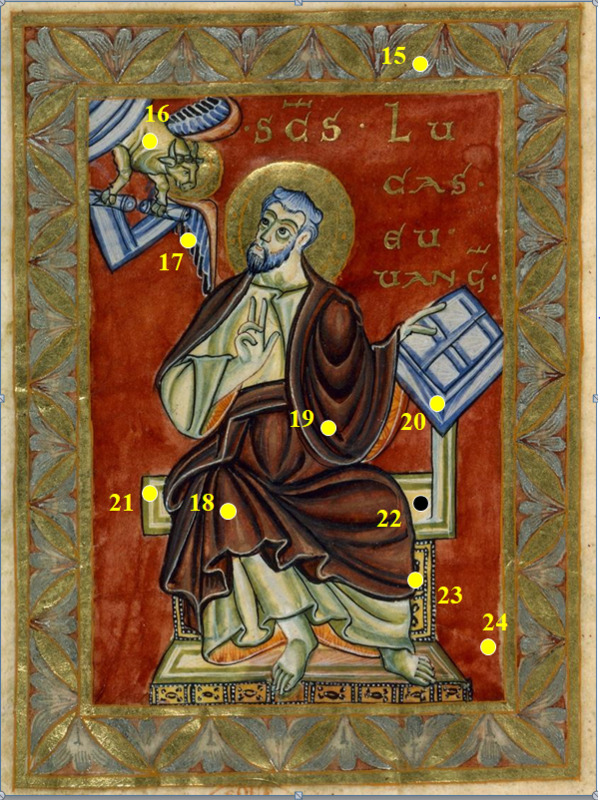 15
16
·SC̄S· LU
CAS·
17
EU·
UANḠ·
19
20
21
18
22
23
24